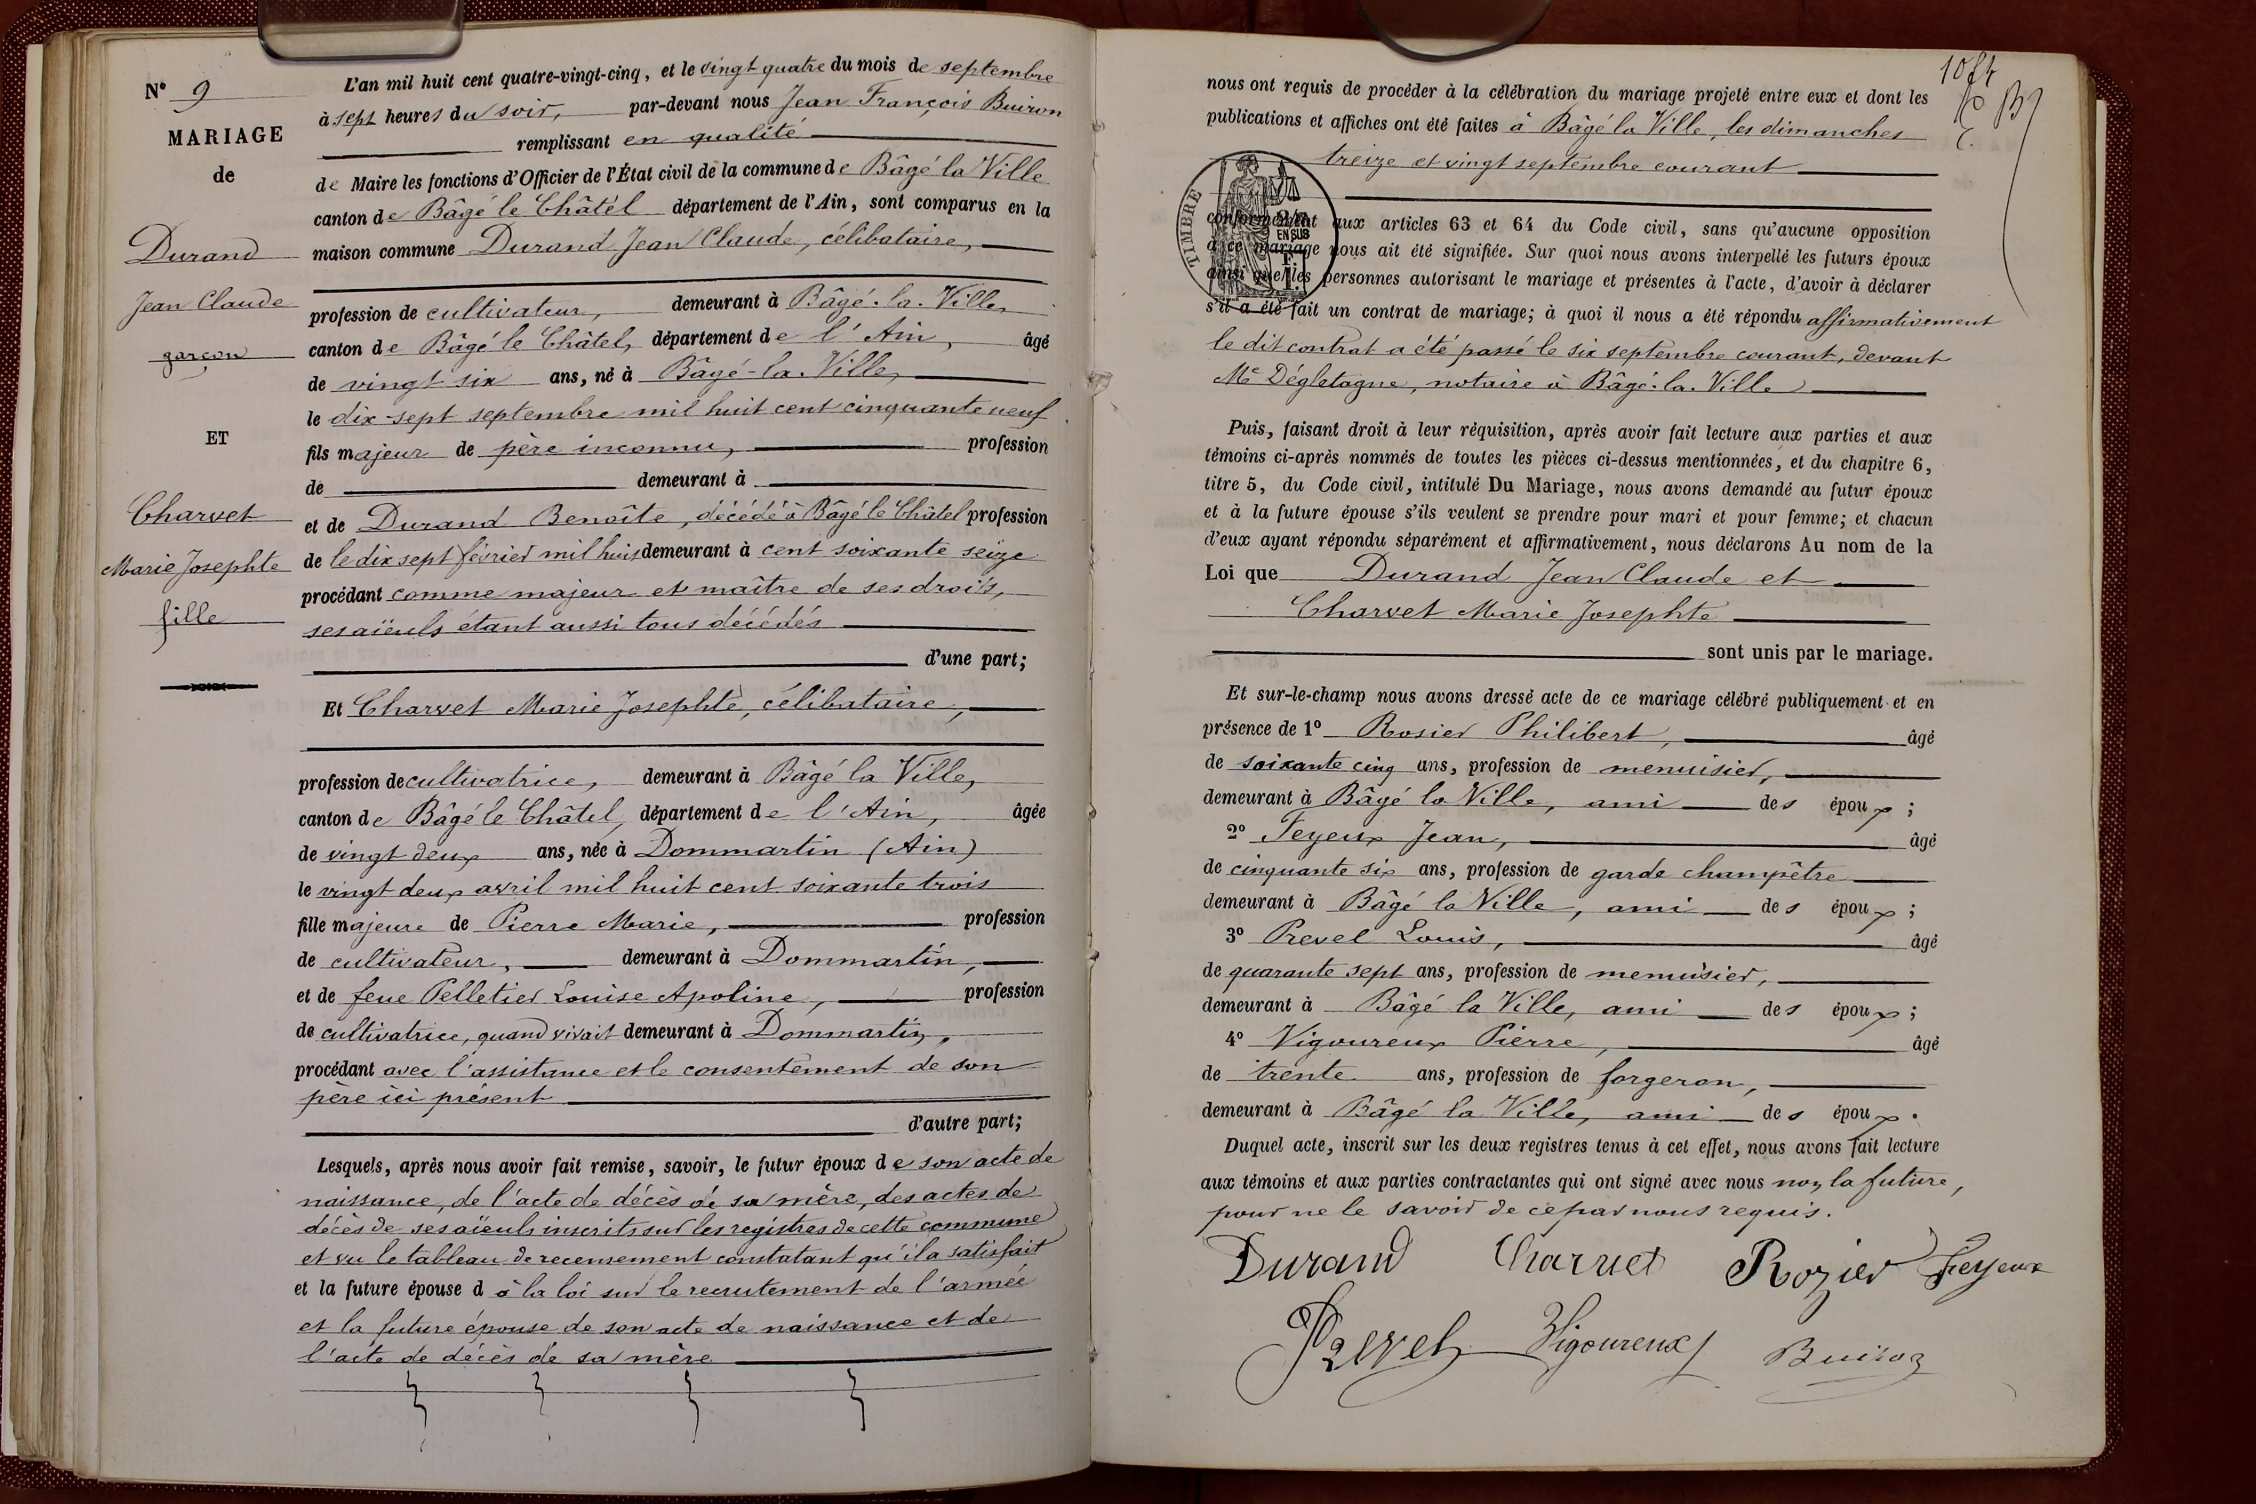 N° 9
MARIAGE
de
Durand
Jean Claude
garçon
ET
Charvet
Marie Josephte
fille
L'an mil huit cent quatre-vingt-cinq, et le vingt quatre du mois de septembre
à sept heures du soir, par-devant nous Jean François Buiron
remplissant en qualité
de Maire les fonctions d'Officier de l'État civil de la commune de Bâgé la Ville
canton de Bâgé le Châtel département de l'Ain, sont comparus en la
maison commune Durand Jean Claude, célibataire,
profession de cultivateur, demeurant à Bâgé-la-Ville,
canton de Bâgé le Châtel, département de l'Ain, âgé
de vingt six ans, né à Bâgé-la-Ville,
le dix-sept septembre mil huit cent cinquante neuf
fils majeur de père inconnu, profession
de demeurant à
et de Durand Benoîte, décédé à Bâgé le Châtel profession
de le dix sept février mil huit demeurant à cent soixante seize
procédant comme majeur et maître de ses droits,
ses aïeuls étant aussi tous décédés
d'une part;
Et Charvet Marie Josephte, célibataire,
profession de cultivatrice, demeurant à Bâgé la Ville,
canton de Bâgé le Châtel, département de l'Ain, âgée
de vingt deux ans, née à Dommartin (Ain)
le vingt deux avril mil huit cent soixante trois
fille majeure de Pierre Marie, profession
de cultivateur, demeurant à Dommartin,
et de feue Pelletier Louise Apoline, profession
de cultivatrice, quand vivait demeurant à Dommartin,
procédant avec l'assistance et le consentement de son
père ici présent
d'autre part;
Lesquels, après nous avoir fait remise, savoir, le futur époux de son acte de
naissance, de l'acte de décès de sa mère, des actes de
décès de ses aïeuls inscrits sur les registres de cette commune
et vu le tableau de recensement constatant qu'il a satisfait
et la future épouse d à la loi sur le recrutement de l'armée
et la future épouse de son acte de naissance et de
l'acte de décès de sa mère
nous ont requis de procéder à la célébration du mariage projeté entre eux et dont les
publications et affiches ont été faites à Bâgé la Ville, les dimanches
treize et vingt septembre courant
TIMBRE
EN SUS
conformément aux articles 63 et 64 du Code civil, sans qu'aucune opposition
à ce mariage nous ait été signifiée. Sur quoi nous avons interpellé les futurs époux
ainsi que les personnes autorisant le mariage et présentes à l'acte, d'avoir à déclarer
s'il a été fait un contrat de mariage; à quoi il nous a été répondu affirmativement
le dit contrat a été passé le six septembre courant, devant
Me Dégletagne, notaire à Bâgé-la-Ville
Puis, faisant droit à leur réquisition, après avoir fait lecture aux parties et aux
témoins ci-après nommés de toutes les pièces ci-dessus mentionnées, et du chapitre 6,
titre 5, du Code civil, intitulé Du Mariage, nous avons demandé au futur époux
et à la future épouse s'ils veulent se prendre pour mari et pour femme; et chacun
d'eux ayant répondu séparément et affirmativement, nous déclarons Au nom de la
Loi que Durand Jean Claude et
Charvet Marie Josephte
sont unis par le mariage.
Et sur-le-champ nous avons dressé acte de ce mariage célébré publiquement et en
présence de 1° Rosier Philibert, âgé
de soixante cinq ans, profession de menuisier,
demeurant à Bâgé la Ville, ami des époux;
2° Feyeux Jean, âgé
de cinquante six ans, profession de garde champêtre
demeurant à Bâgé la Ville, ami des époux;
3° Prevel Louis, âgé
de quarante sept ans, profession de menuisier,
demeurant à Bâgé la Ville, ami des époux;
4° Vigoureux Pierre, âgé
de trente ans, profession de forgeron,
demeurant à Bâgé la Ville, ami des époux.
Duquel acte, inscrit sur les deux registres tenus à cet effet, nous avons fait lecture
aux témoins et aux parties contractantes qui ont signé avec nous non la future,
pour ne le savoir de ce par nous requis.
Durand Charvet Rozier Feyeux
Prevel Vigoureux Buiron